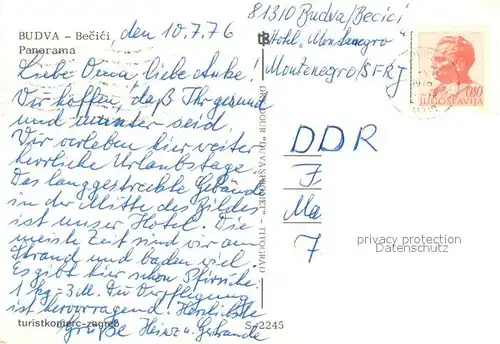 BUDVA – Bečići
Panorama
den 10.7.76
Liebe Oma, liebe Anke!
Wir hoffen, daß Ihr gesund
und munter seid.
Wir verleben hier weiter
herrliche Urlaubstage.
Das langgestreckte Gebäude
in der Mitte des Bildes
ist unser Hotel. Die
meiste Zeit sind wir am
Strand und baden viel.
Es gibt hier schon Pfirsiche
1 kg - 3 M. Die Verpflegung
ist hervorragend. Herzlichste
Grüße Heinz u. Gertraude
turistkomerc-zagreb
S-2245
TITOGRAD
81310 Budva/Becici
Hotel „Montenegro"
Montenegro/SFRJ
0,80
JUGOSLAVIJA
DDR
F
Ma
7
privacy protection
Datenschutz